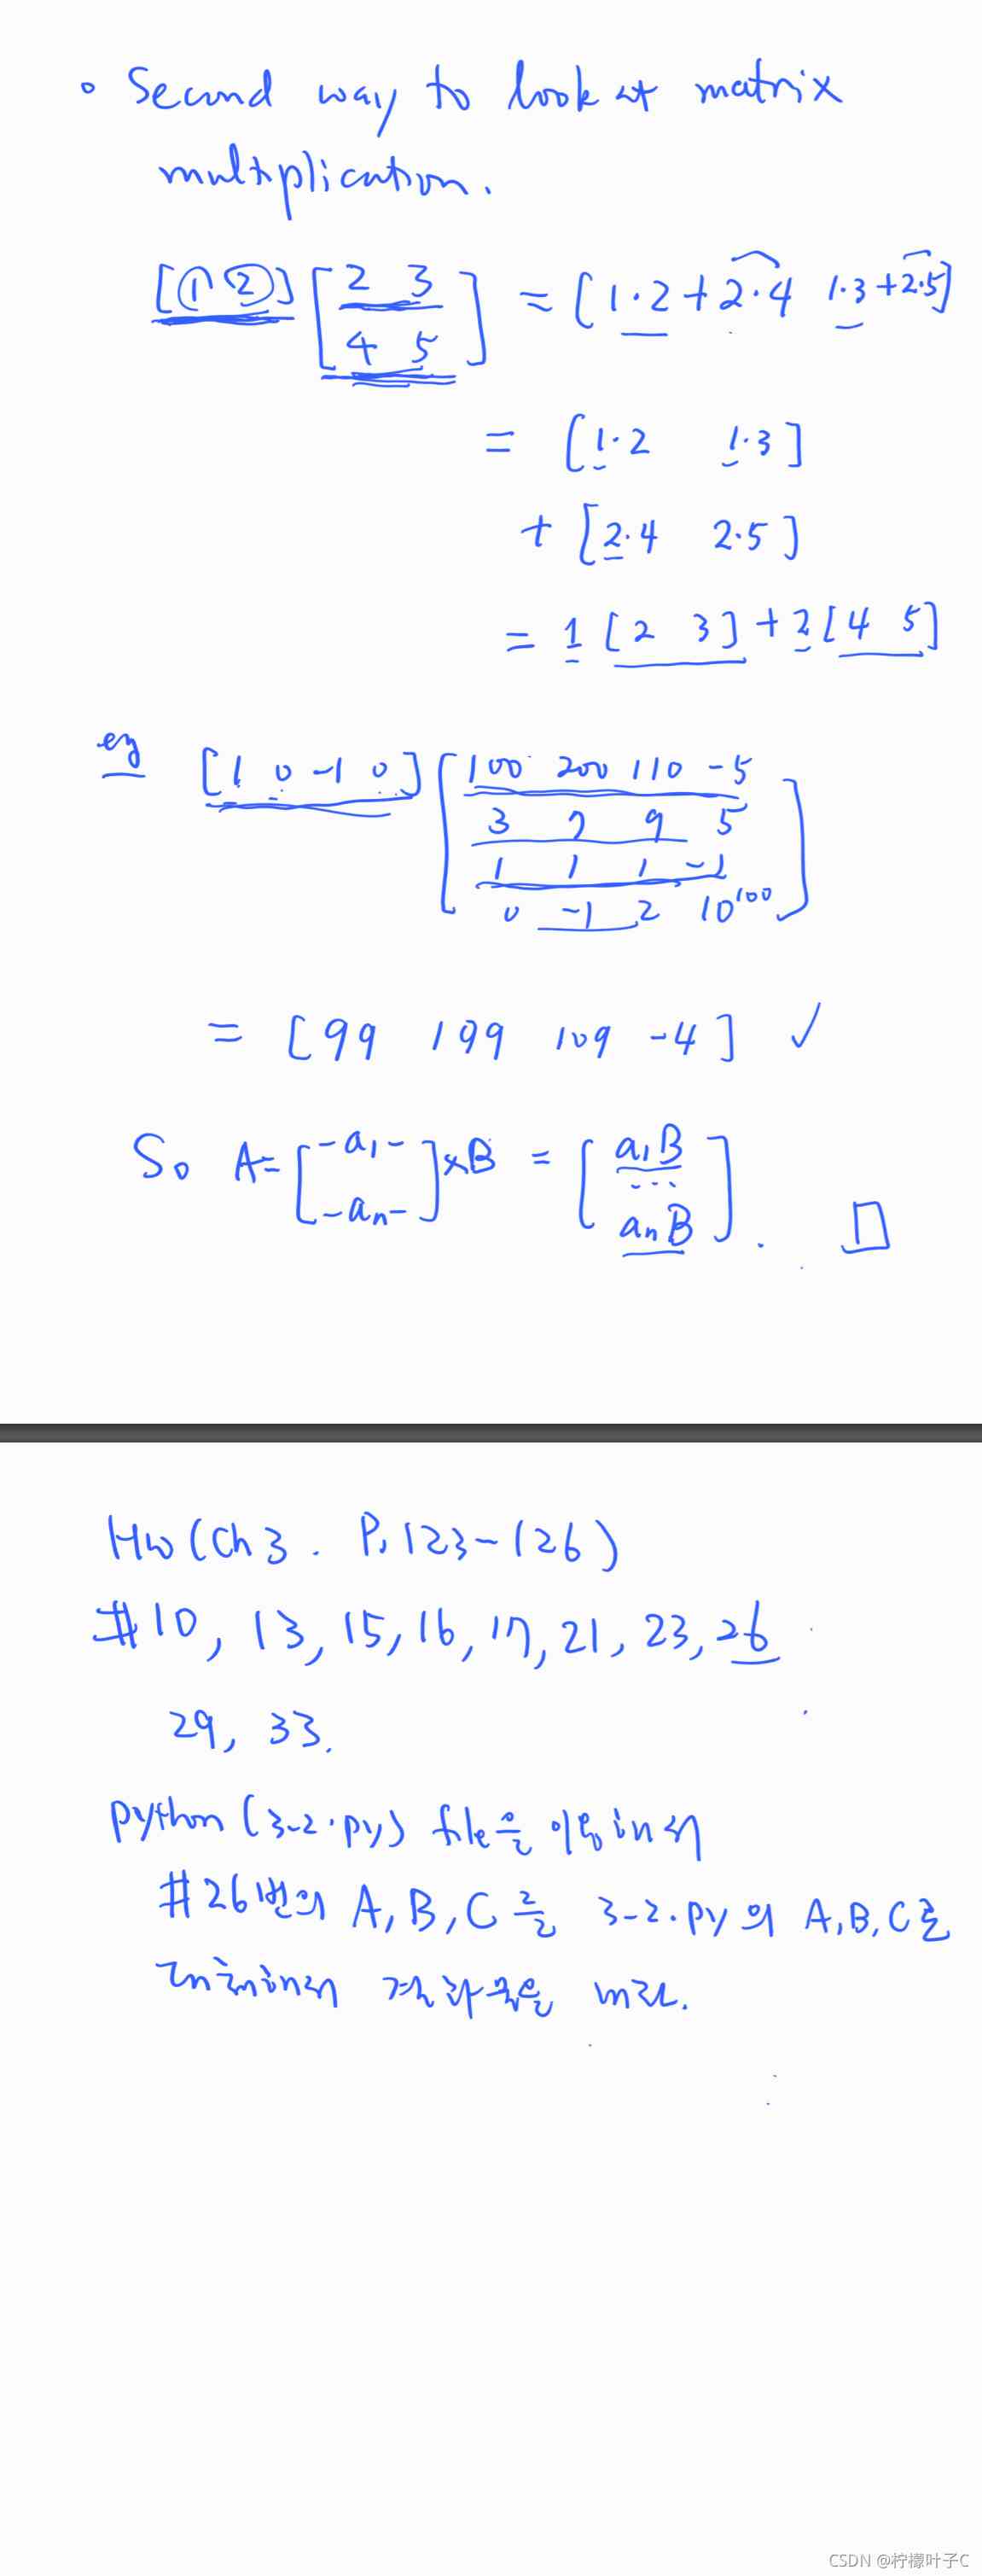 • Second way to look at matrix
multiplication.
[1 2] [2 3
4 5] = [1·2+2·4 1·3+2·5]
= [1·2 1·3]
+ [2·4 2·5]
= 1 [2 3] + 2 [4 5]
eg [1 0 -1 0] [100 200 110 -5
3 7 9 5
1 1 1 -1
0 -1 2 10^100]
= [99 199 109 -4] ✓
So A= [-a₁-
-aₙ-] ×B = [a₁B
...
aₙB]. □
Hw (Ch 3. P. 123-126)
#10, 13, 15, 16, 17, 21, 23, 26
29, 33.
python (3-2.py) file을 이용해서
#26번의 A, B, C를 3-2.py의 A, B, C로
대체해서 결과물을 내라.
CSDN @柠檬叶子C